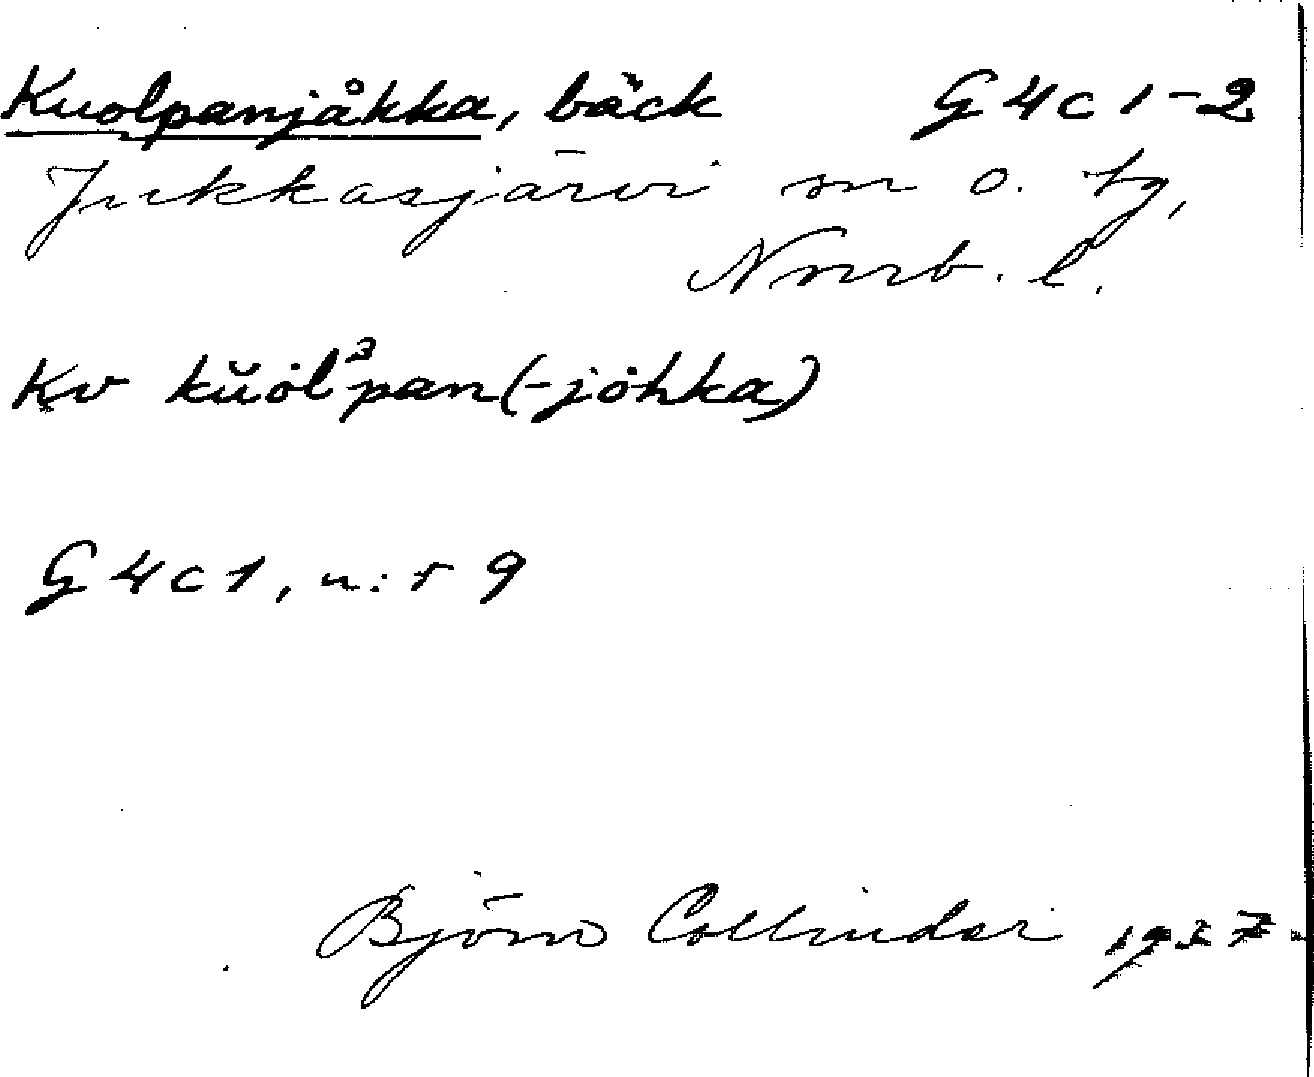 Kuolpanjåkka, bäck G 4 c 1-2
Jukkasjärvi sn o. tg,
Norrb. l.
Kv kŭȯlᵌpan(-jȯhka)
G 4 c 1, n:r 9
Björn Collinder 1927.